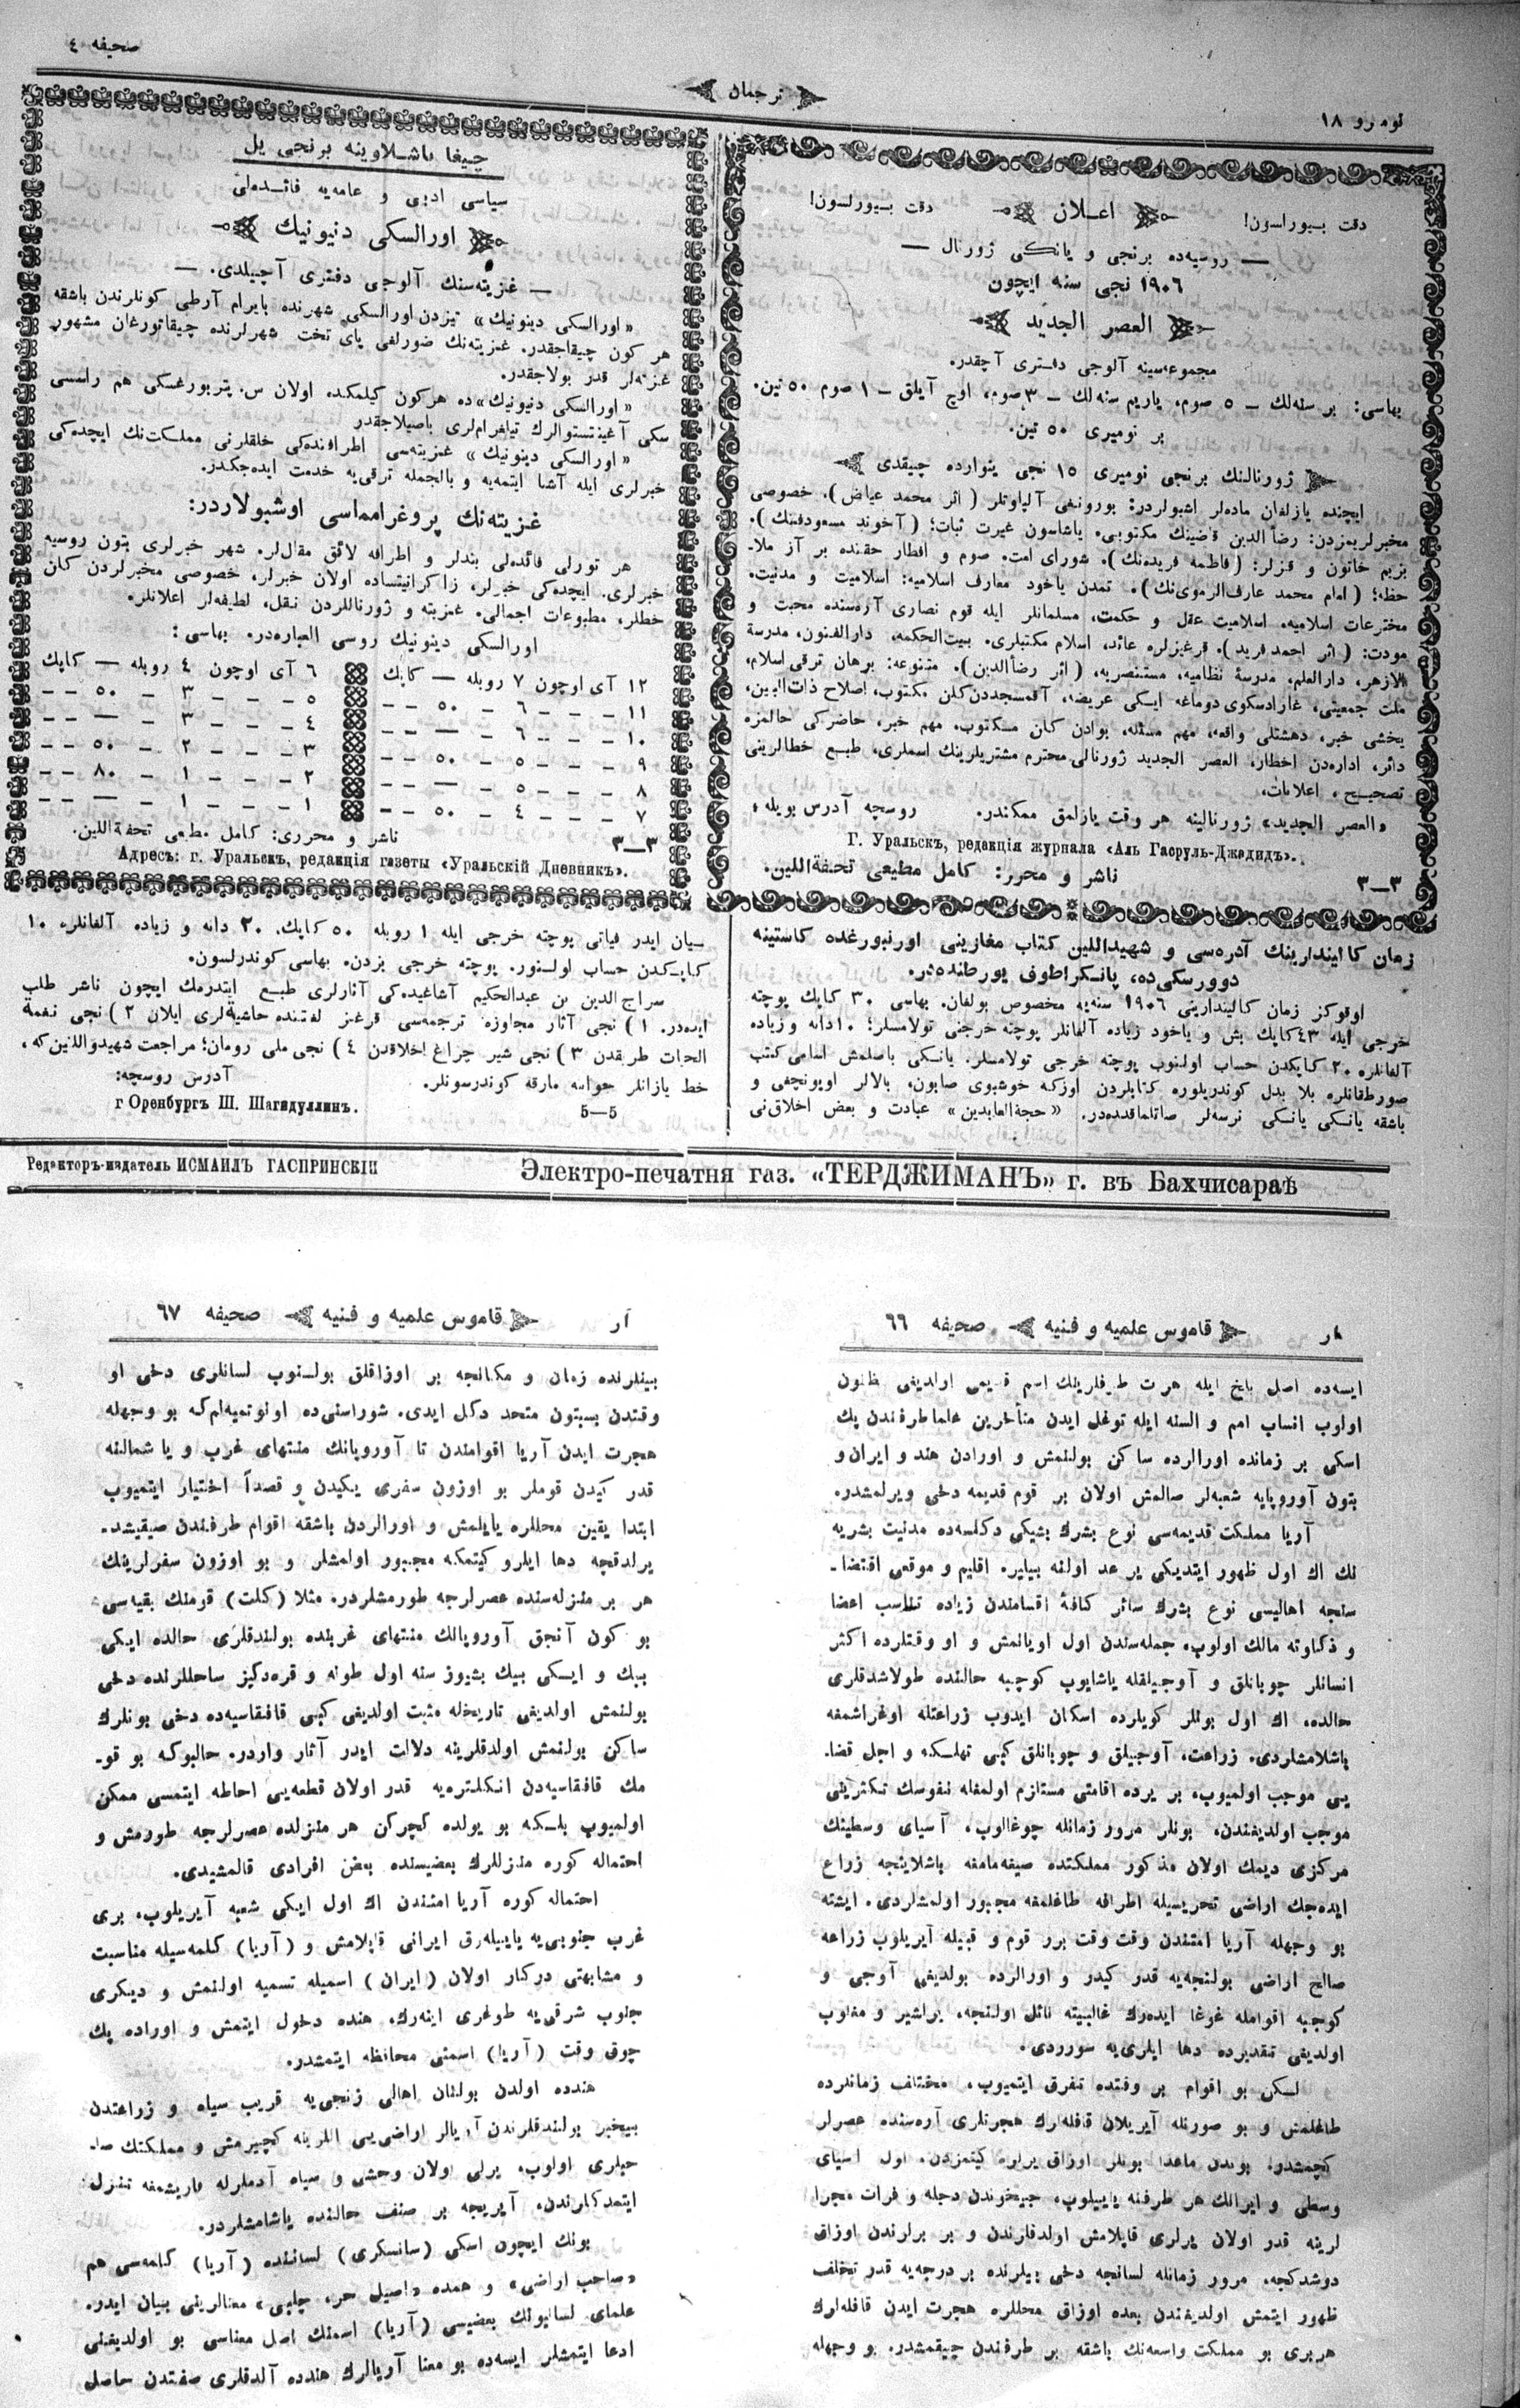 نومرو ١٨
ترجمان
صحیفه ٤
دقت بیوراسون!
اعلان
دقت بیورلسون!
— روسیه‌ده برنجی و یاڭی ژورنال —
١٩٠٦ نجی سنه ایچون
العصر الجدید
مجموعه‌سینه آلوجی دفتری آچقدر.
بهاسی: بر سنه‌لك – ٥ صوم، یاریم سنه‌لك – ٣ صوم، اوچ آیلق – ١ صوم ٥٠ تین.
بر نومیری ٥٠ تین.
ژورنالنك برنجی نومیری ١٥ نجی ینوارده چیقدی
ایچنده یازلغان ماده‌لر اشبولردر: بورونغی آلپاوتلر (اثر محمد عیاض). خصوصی
مخبرلریمزدن: رضأ الدین قاضینك مكتوبی. یاشاسون غیرت ثبات؛ (آخوند مسعودفننك).
بزیم خاتون و قیزلر: (فاطمه فریده‌نك). شورای امت. صوم و افطار حقنده بر آز ملا-
حظه؛ (امام محمد عارف الرموی‌نك). تمدن یاخود معارف اسلامیه: اسلامیت و مدنیت.
مخترعات اسلامیه. اسلامیت عقل و حكمت، مسلمانلر ایله قوم نصاری آره‌سنده محبت و
مودت: (اثر احمد فرید). قرغیزلره عائد، اسلام مكتبلری. بیت‌الحكمه، دارالفنون، مدرسۀ
الازهر، دارالعلم، مدرسۀ نظامیه، مستنصریه، (اثر رضأالدین). متنوعه: برهان ترقی اسلام،
ملت جمعیتی، غارادسكوی دوماغه ایسكی عریضه، آقمسجددن كلن مكتوب، اصلاح ذات‌البین،
یخشی خبر، دهشتلی واقعه، مهم مسئله، بوادن كان مسكتوب. مهم خبر، حاضركی حالمزه
دائر، اداره‌دن اخطار، العصر الجدید ژورنالی محترم مشتریلرینك اسملری، طبع خطالرینی
تصحیح، اعلانات.
«العصر الجدید» ژورنالینه هر وقت یازلمق ممكندر. روسچه آدرس بویله:
Г. Уральскъ, редакція журнала «Аль Гасруль-Джадидъ».
٣—٣ ناشر و محرر: كامل مطیعی تحفة‌اللین.
چیغا باشلاوینه برنجی یل
سیاسی ادبی و عامه‌یه فائده‌لی
اورالسكی دنیونیك
— غزیته‌سنك آلوجی دفتری آچیلدی. —
«اورالسكی دینونیك» تیزدن اورالسكی شهرنده بایرام آرطی كونلرندن باشقه
هر كون چیقاجقدر. غزیته‌نك ضورلغی پای تخت شهرلرنده چیقاتورغان مشهور
غزته‌لر قدر بولاجقدر.
«اورالسكی دنیونیك»ده هركون كیلمكده اولان س. پتربورغسكی هم راسسی
سكی آغینتستوالرك تیلغراملری باصیلاجقدر
«اورالسكی دینونیك» غزیته‌سی اطرافنده‌كی خلقلرنی مملكت‌نك ایچده‌كی
خبرلری ایله آشنا ایتمه‌یه و بالجمله ترقی‌یه خدمت ایده‌جكدر.
غزیته‌نك پروغرامماسی اوشبولاردر:
هر تورلی فائده‌لی بندلر و اطرافه لائق مقاللر. شهر خبرلری بتون روسیه
خبرلری. ایچده‌كی خبرلر، زاگرانیتساده اولان خبرلر، خصوصی مخبرلردن كان
خطلر، مطبوعات اجمالی. غزیته و ژورناللردن نقل، لطیفه‌لر اعلانلر.
اورالسكی دینونیك روسی العباره‌در. بهاسی:
١٢ آی اوچون ٧ روبله — كاپك ٦ آی اوچون ٤ روبله — كاپك
١١ - - - ٦ - ٥٠ - - ٥ - - - ٣ - ٥٠ - -
١٠ - - - ٦ - — - - ٤ - - - ٣ - — - -
٩ - - - ٥ - ٥٠ - - ٣ - - - ٢ - ٥٠ - -
٨ - - - ٥ - — - - ٢ - - - ١ - ٨٠ - -
٧ - - - ٤ - ٥٠ - - ١ - - - ١ - — - -
٣—٣ ناشر و محرری: كامل مطیعی تحفة‌اللین.
Адресъ: г. Уральскъ, редакція газеты «Уральскій Дневникъ».
زمان كالیندارینك آدره‌سی و شهیداللین كتاب مغازینی اورنبورغده كاستینه
دوورسكی‌ده، پانسكراطوف یورطنده‌در.
اوقوكز زمان كالیندارینی ١٩٠٦ سنه‌یه مخصوص بولغان. بهاسی ٣٠ كاپك پوچته
خرجی ایله ٤٣ كاپك بش و یاخود زیاده آلغانلر پوچته خرجنی تولامسلر؛ ١٠ دانه و زیاده
آلغانلره ٢٠ كاپكدن حساب اولنوب پوچته خرجی تولامسلر. یاڭی باصلمش اسامی كتب
صورطقانلره بلا بدل كوندریلوره كتابلردن اوزكه خوشبوی صابون، بالالر اویونچغی و
باشقه یانسكی یانسكی نرسه‌لر صاتلماقده‌در. «حجة‌العابدین» عبادت و بعض اخلاق‌نی
بیان ایدر فیاتی پوچته خرجی ایله ١ روبله ٥٠ كاپك. ٢٠ دانه و زیاده آلغانلره ١٠
كاپكدن حساب اولنور. پوچته خرجی بزدن. بهاسی كوندرلسون.
سراج الدین بن عبدالحكیم آشاغیده‌كی آثارلری طبع ایتدرمك ایچون ناشر طلب
ایده‌در. ١) نجی آثار مجاوزه ترجمه‌سی قرغز لغتنده حاشیه‌لری ایلان ٢) نجی نغمۀ
الحیات طریقدن ٣) نجی شیر چراغ اخلاقدن ٤) نجی ملی رومان؛ مراجعت شهیدواللین‌كه،
خط یازانلر جوابنه مارقه كوندرسونلر.
آدرس روسچه:
5—5 г Оренбургъ Ш. Шагидуллинъ.
Редакторъ-издатель ИСМАИЛЪ ГАСПРИНСКІЙ
Электро-печатня газ. «ТЕРДЖИМАНЪ» г. въ Бахчисараѣ
ار قاموس علمیه و فنیه صحیفه ٦٦
ایسه‌ده اصل بلخ ایله هرت طرفلرینك اسم قدیمی اولدیغی مظنون
اولوب انساب امم و السنه ایله توغل ایدن متأخرین علما طرفندن پك
اسكی بر زمانده اورالرده ساكن بولنمش و اورادن هند و ایران و
بتون آوروپایه شعبه‌لر صالمش اولان بر قوم قدیمه دخی ویرلمشدر.
آریا مملكت قدیمه‌سی نوع بشرك بشیكی دكلسه‌ده مدنیت بشریه
نك اك اول ظهور ایتدیكی یر عد اولنه بیلیر. اقلیم و موقعی اقتضا-
سنجه اهالیسی نوع بشرك سائر كافۀ اقسامندن زیاده تناسب اعضا
و ذكاوته مالك اولوب، جمله‌سندن اول اویانمش و او وقتلرده اكثر
انسانلر چوبانلق و آوجیلقله یاشایوب كوچبه حالنده طولاشدقلری
حالده، اك اول بونلر كویلرده اسكان ایدوب زراعتله اوغراشمغه
باشلامشلردی. زراعت، آوجیلق و چوبانلق كبی تهلسكه و اجل قضا-
یی موجب اولمیوب، بر یرده اقامتی مستلزم اولمغله نفوسك تكثرینی
موجب اولدیغندن، بونلر مرور زمانله چوغالوب، آسیای وسطینك
مركزی دیمك اولان مذكور مملكتده صیغه‌مامغه باشلاینجه زراع
ایده‌جك اراضی تحریسیله اطرافه طاغلمغه مجبور اولمشلردی. ایشته
بو وجهله آریا امتندن وقت وقت برر قوم و قبیله آیریلوب زراعه
صالح اراضی بولنجه‌یه قدر كیدر و اورالرده بولدیغی آوجی و
كوچبه اقوامله غوغا ایده‌رك غالبیته نائل اولنجه، یراشیر و مغلوب
اولدیغی تقدیرده دها ایلری‌یه سورردی.
لسكن بو اقوام بر وقتده تفرق ایتمیوب، مختلف زمانلرده
طاغلمش و بو صورتله آیریلان قافله‌لرك هجرتلری آره‌سنده عصرلر
كچمشدر. بوندن ماعدا بونلر اوزاق یرلره كیتمزدن، اول آسیای
وسطی و ایرانك هر طرفنه یاییلوب، جیحوندن دجله و فرات مجرا
لرینه قدر اولان یرلری قاپلامش اولدقلرندن و بر برلرندن اوزاق
دوشدكجه، مرور زمانله لسانجه دخی بیلرنده بر درجه‌یه قدر تخلف
ظهور ایتمش اولدیغندن بعده اوزاق محللره هجرت ایدن قافله‌لرك
هربری بو مملكت واسعه‌نك باشقه بر طرفندن چیقمشدر. بو وجهله
ار قاموس علمیه و فنیه صحیفه ٦٧
بینلرنده زمان و مكانجه بر اوزاقلق بولنوب لسانلری دخی او
وقتدن بسبتون متحد دكل ایدی. شوراسنی‌ده اونوتمیه‌لم‌كه بو وجهله
هجرت ایدن آریا اقوامندن تا آوروپانك منتهای غرب و یا شمالنه
قدر كیدن قوملر بو اوزون سفری یكیدن و قصداً اختیار ایتمیوب
ابتدا یقین محللره یایلمش و اورالردن باشقه اقوام طرفندن صیقیشد-
یرلدقچه دها ایلرو كیتمكه مجبور اولمشلر و بو اوزون سفرلرینك
هر بر منزله‌سنده عصرلرجه طورمشلردر. مثلا (كلت) قومنك بقیه‌سی
بو كون آنجق آوروپانك منتهای غربنده بولندقلری حالده ایكی
بیك و ایسكی بیك بشیوز سنه اول طونه و قره‌دكیز ساحللرنده دخی
بولنمش اولدیغی تاریخله مثبت اولدیغی كبی قافقاسیه‌ده دخی بونلرك
ساكن بولنمش اولدقلرینه دلالت ایدر آثار واردر. حالبوكه بو قو-
مك قافقاسیه‌دن انكلتره‌یه قدر اولان قطعه‌یی احاطه ایتمسی ممكن
اولمیوب بلسكه بو یولده كچركن هر منزلده عصرلرجه طورمش و
احتماله كوره منزللرك بعضیسنده بعض افرادی قالمشیدی.
احتماله كوره آریا امتندن اك اول ایكی شعبه آیریلوب، بری
غرب جنوبی‌یه یاییله‌رق ایرانی قاپلامش و (آریا) كلمه‌سیله مناسبت
و مشابهتی دركار اولان (ایران) اسمیله تسمیه اولنمش و دیكری
جنوب شرقی‌یه طوغری اینه‌رك، هنده دخول ایتمش و اوراده پك
چوق وقت (آریا) اسمنی محافظه ایتمشدر.
هندده اولدن بولنان اهالی زنجی‌یه قریب سیاه و زراعتدن
بیخبر بولندقلرندن آریالر اراضی‌یی اللرینه كچیرمش و مملكتك صا-
حبلری اولوب، یرلی اولان وحشی و سیاه آدملرله قاریشمغه تنزل
ایتمدكلرندن، آیریجه بر صنف حالنده یاشامشلردر.
بونك ایچون اسكی (سانسكری) لساننده (آریا) كلمه‌سی هم
«صاحب اراضی» و همده «اصیل حر، چلبی» معنالرینی بیان ایدر.
علمای لسانیونك بعضیسی (آریا) اسمنك اصل معناسی بو اولدیغنی
ادعا ایتمشلر ایسه‌ده بو معنا آریالرك هندده آلدقلری صفتدن حاصل